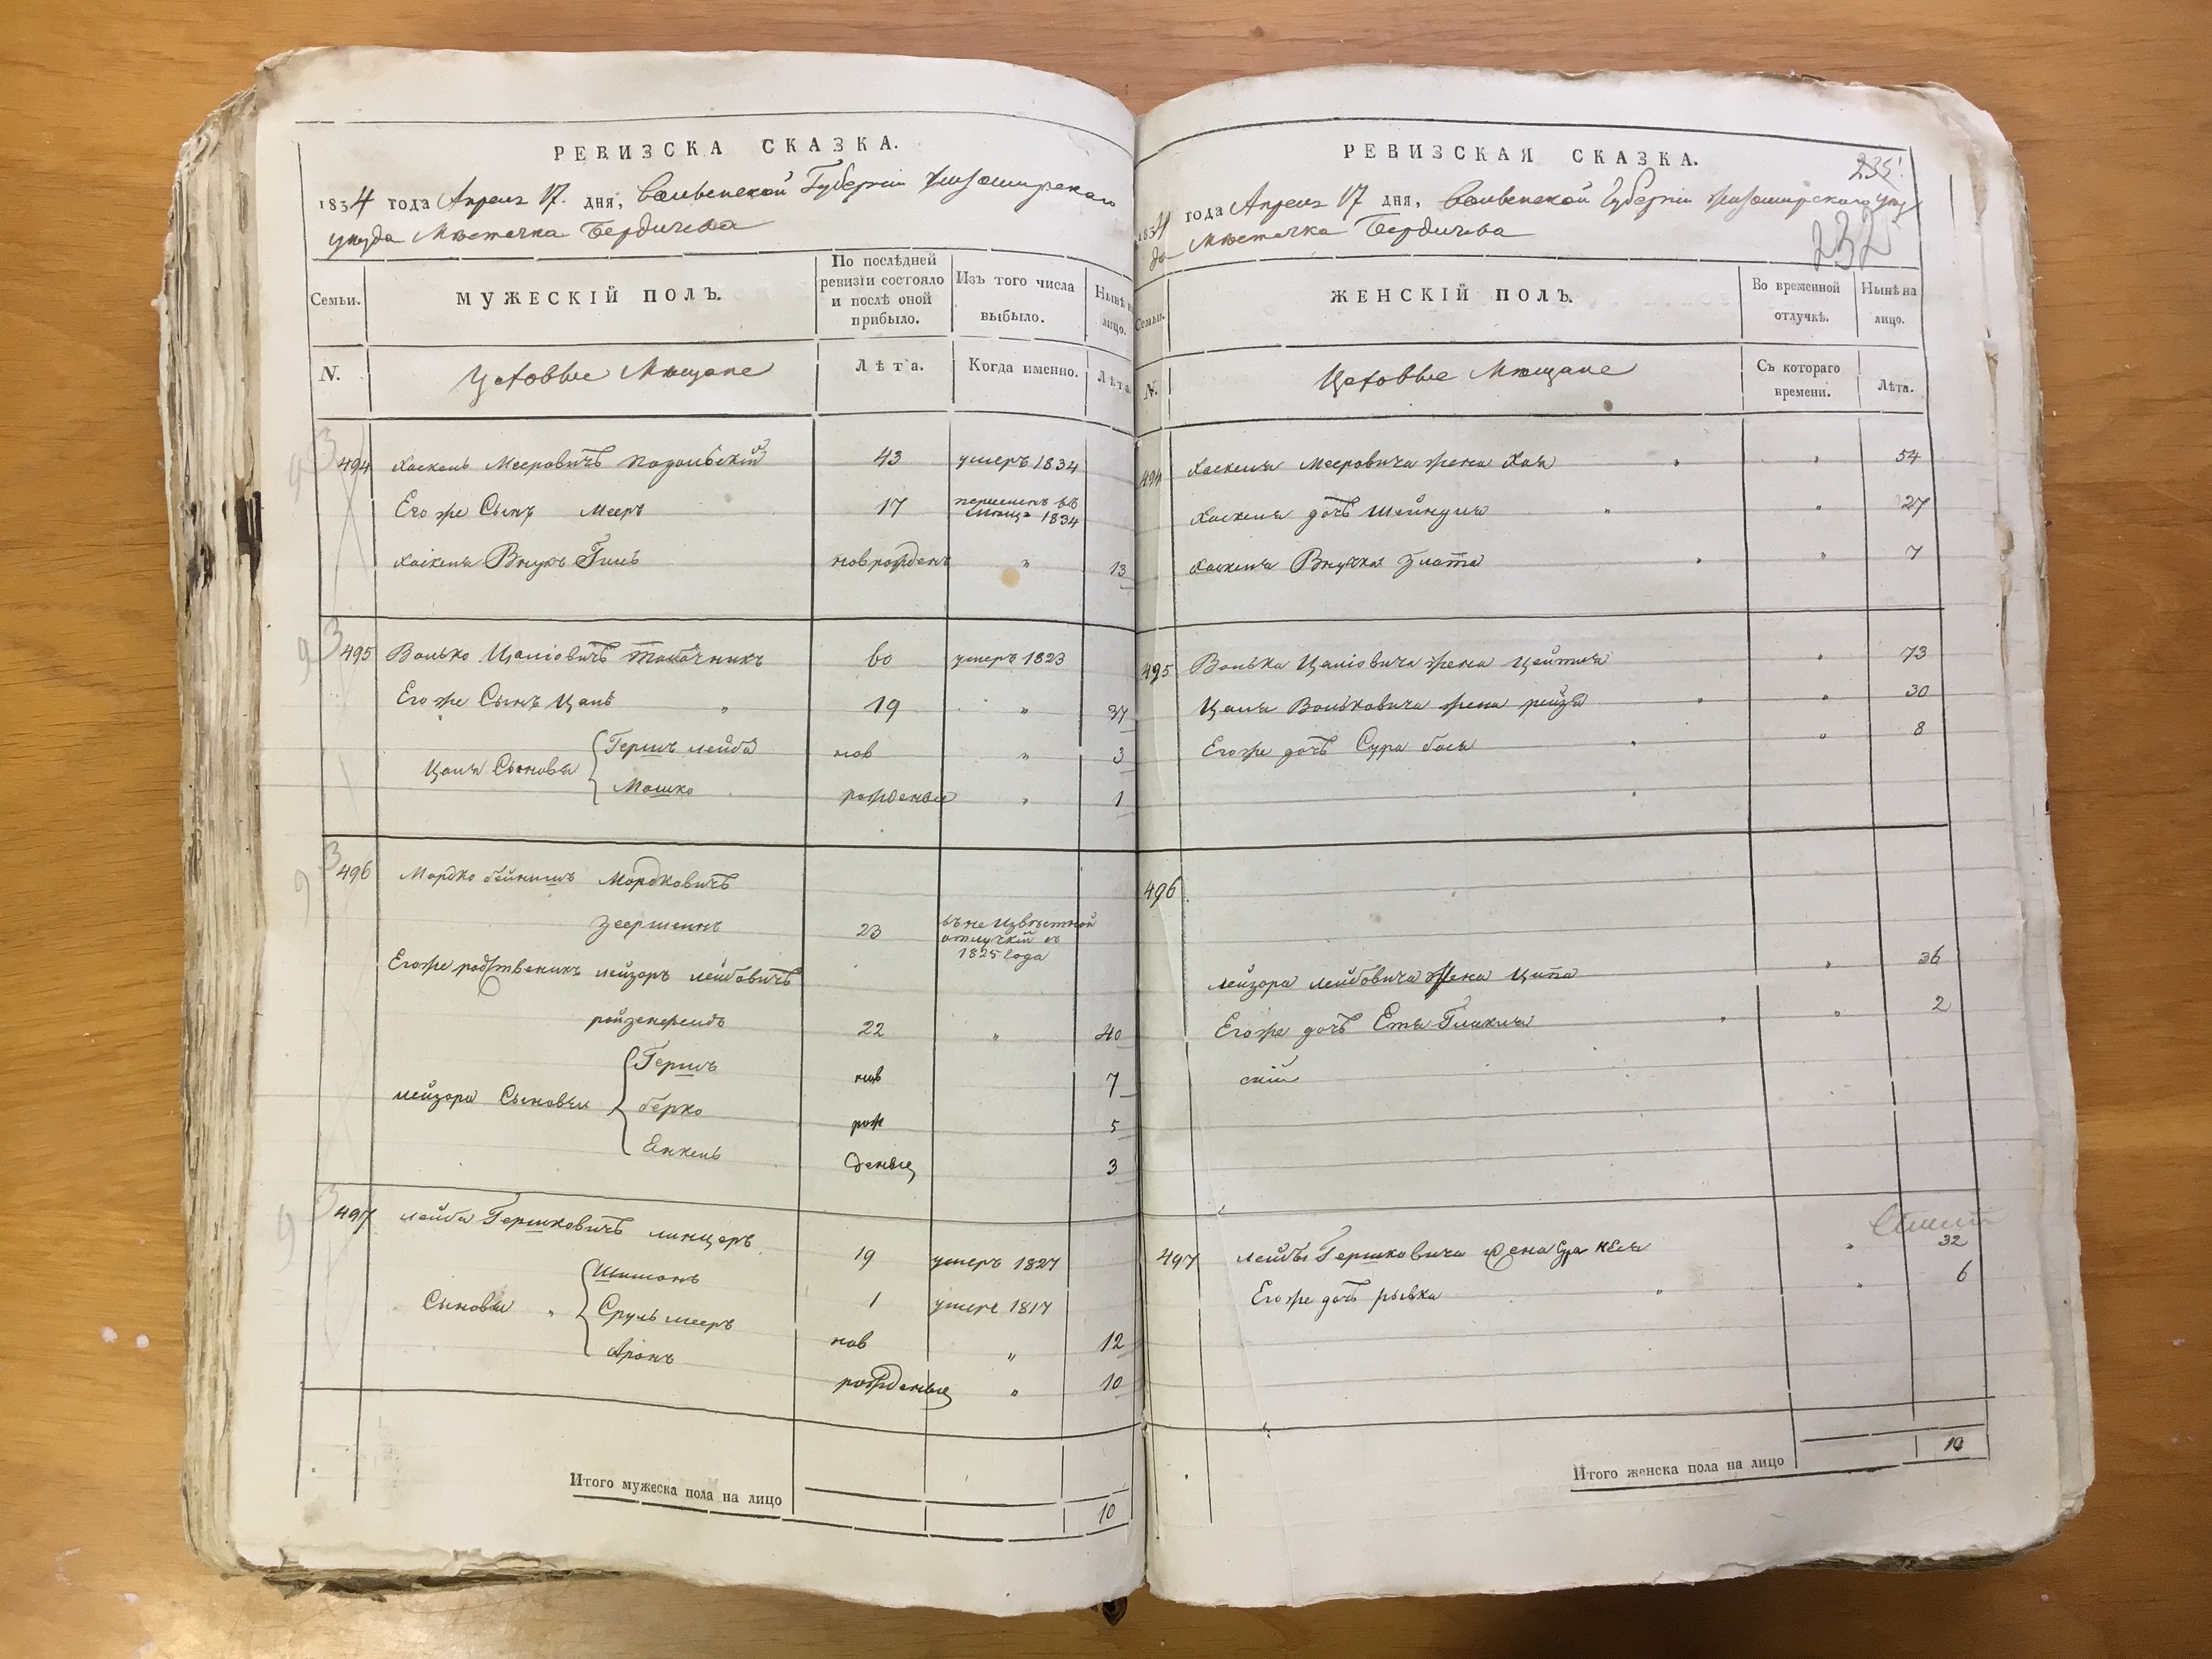 РЕВИЗСКА СКАЗКА.
1834 года Апреля 17. дня, Волынской Губерніи Житомирскаго
уезда Мѣстечка Бердичева
Семьи.
МУЖЕСКІЙ ПОЛЪ.
По послѣдней ревизіи состояло и послѣ оной прибыло.
Изъ того числа выбыло.
Нынѣ на лицо.
N.
Цеховые Мещане
Лѣта.
Когда именно.
Лѣта
494 Хаскель Мееровичъ Подольскій 43 умеръ 1834
Его же Сынъ Мееръ 17 1834
Хаскеля Внукъ Гиль новорожденъ " 13
495 Волько Цаліовичъ Табачникъ 60 умеръ 1823
Его же Сынъ Цаль " 19 " 37
Цаля Сыновья
Гершъ лейба нов " 3
Мошко рожденые " 1
496 Мордко бейнишъ Мордковичъ
23 въ не Извѣстной
отлучкѣ съ
1825 года
Его же родственикъ лейзоръ лейбовичъ
22 " 40
лейзора Сыновья
Гершъ нов 7
берко рож 5
Янкель деные 3
497 лейба Гершковичъ линцеръ 19 умеръ 1827
Сыновья "
Шимонъ 1 умере 1817
Сруль мееръ нов " 12
Аронъ рожденые " 10
Итого мужеска пола на лицо 10
РЕВИЗСКАЯ СКАЗКА.
235
1834 года Апреля 17 дня, Волынской Губерніи Житомирскаго уез
да Мѣстечка Бердичева
232
Семьи.
ЖЕНСКІЙ ПОЛЪ.
Во временной отлучкѣ.
Нынѣ на лицо.
N.
Цеховые Мещане
Съ котораго времени.
Лѣта.
494 Хаскеля Мееровича жена Хая " " 54
Хаскеля дочъ Шейндля " " 27
Хаскеля Внучка Злота " " 7
495 Волька Цаліовича жена Цейтля " 73
Цаля Вольковича жена рейзя " " 30
Его же дочъ Сура бася " " 8
496
лейзора лейбовича жена Ципа " 36
Его же дочъ Етя Гликля " " 2
497 лейбы Гершковича жена Сура Неля " 32
Его же дочъ рывка " " 6
Итого женска пола на лицо 10